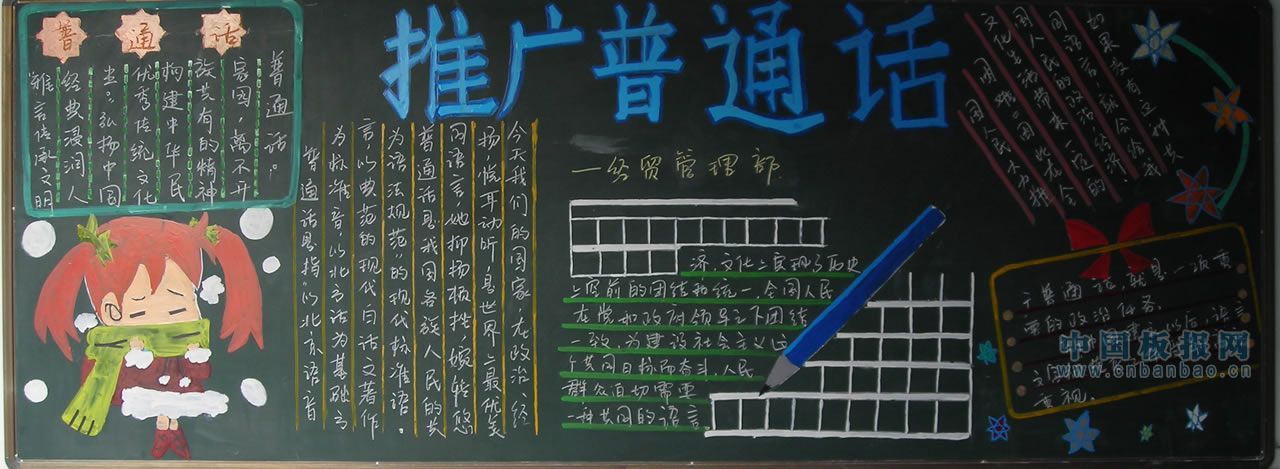 推广普通话
普通话
“雅言传承文明
经典浸润人
生”，弘扬中国
优秀传统文化
构建中华民
族共有的精神
家园，离不开
普通话。
一经贸管理部
普通话是指“以北京语音
为标准音，以北方话为基础方
言，以典范的现代白话文著作
为语法规范”的现代标准语。
普通话是我国各族人民的共
同语言，她抑扬板挫，婉转悠
扬，悦耳动听，是世界上最优美
今天我们的国家，在政治、经
济、文化上实现了历史
上空前的团结和统一，全国人民
在党和政府领导之下团结
一致，为建设社会主义
共同目标而奋斗，人民
群众迫切需要
一种共同的语言。
如果没有这种共
同语言，就会给我
国人民的政治、经济、
文化生活带来一定的
困难。因此在全
国人民中推
广普通话，就是一项重
要的政治任务。
以后，语言
重视。
中国板报网
www.cnbanbao.cn